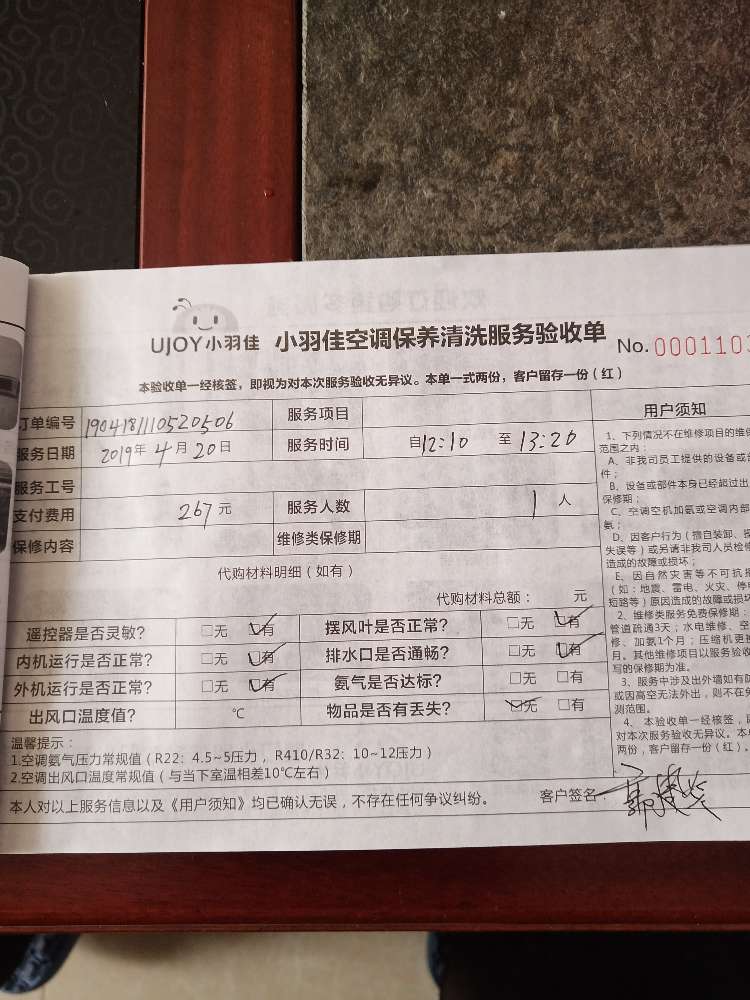 UJOY小羽佳 小羽佳空调保养清洗服务验收单 No.000110
本验收单一经核签，即视为对本次服务验收无异议。本单一式两份，客户留存一份（红）
订单编号 1904181110520506 服务项目
服务日期 2019年4月20日 服务时间 自12:10 至13:20
服务工号
支付费用 267元 服务人数 1人
保修内容 维修类保修期
代购材料明细（如有）
代购材料总额： 元
遥控器是否灵敏？ □无 □有 摆风叶是否正常？ □无 □有
内机运行是否正常？ □无 □有 排水口是否通畅？ □无 □有
外机运行是否正常？ □无 □有 氨气是否达标？ □无 □有
出风口温度值？ ℃ 物品是否有丢失？ □无 □有
温馨提示：
1.空调氨气压力常规值（R22：4.5~5压力，R410/R32：10~12压力）
2.空调出风口温度常规值（与当下室温相差10℃左右）
本人对以上服务信息以及《用户须知》均已确认无误，不存在任何争议纠纷。 客户签名：
用户须知
1、下列情况不在维修项目的维
范围之内：
A、非我司员工提供的设备或
件；
B、设备或部件本身已经超过出
保修期；
C、空调空机加氨或空调内部
氨；
D、因客户行为（擅自装卸、
失误等）或另请非我司人员检
造成的故障或损坏；
E、因自然灾害等不可抗
（如：地震、雷电、火灾、停
短路等）原因造成的故障或损坏
2、维修类服务免费保修期：
管道疏通3天；水电维修、空
修、加氨1个月；压缩机更
月。其他维修项目以服务验收
写的保修期为准。
3、服务中涉及出外墙如有
或因高空无法外出，则不在
测范围。
4、本验收单一经核签，
对本次服务验收无异议。本
两份，客户留存一份（红）。